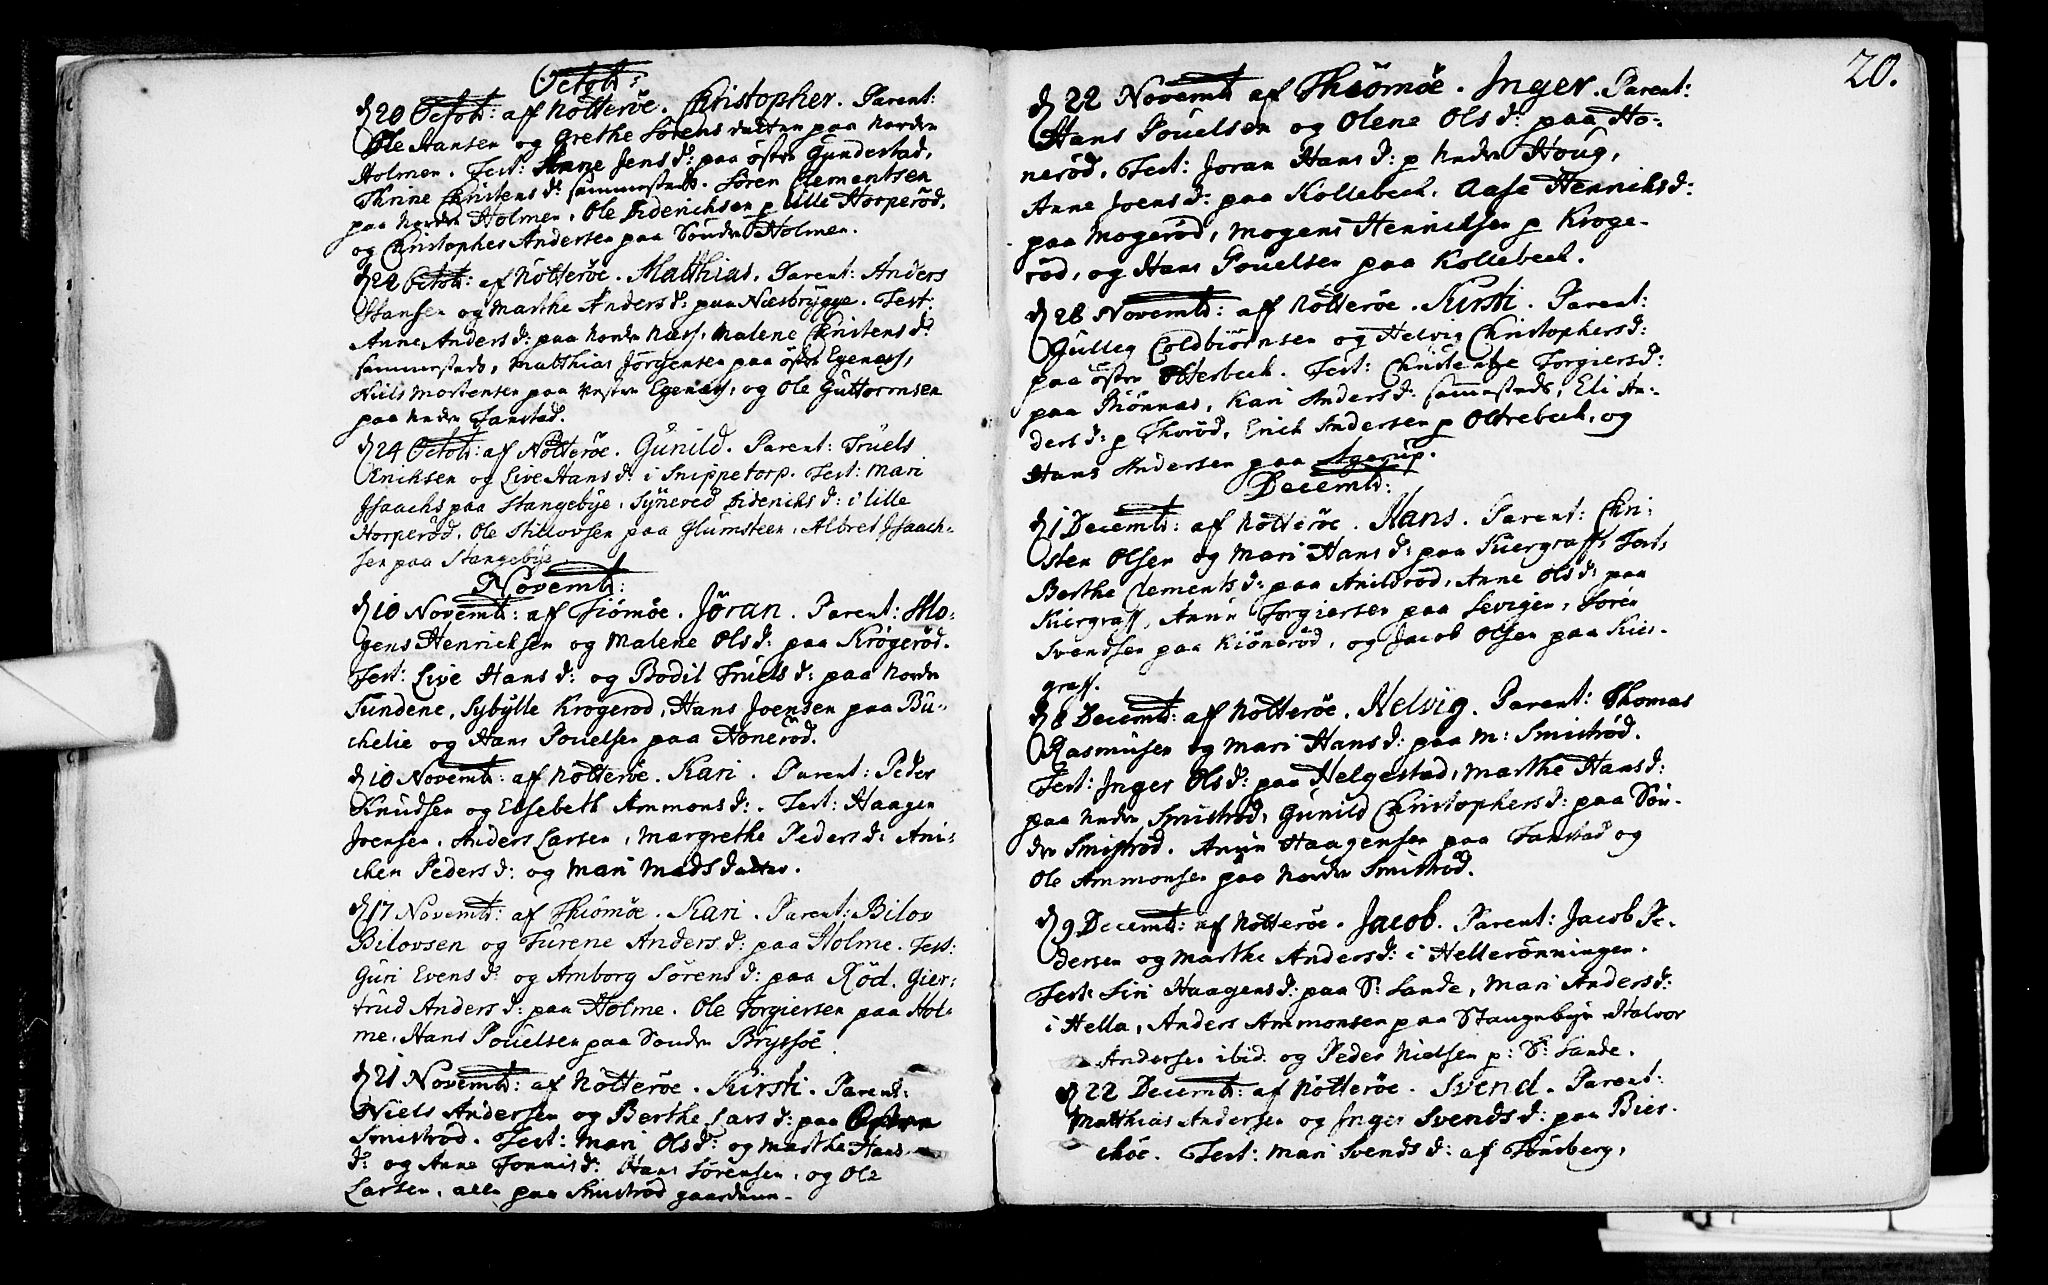 Octob:
d 20 Octob: af Nötteröe. Christopher. Parent:
Ole Hansen og Grethe Sörens datter paa Nordre
Holmen. Test: Anne Jens d: paa östre Gundestad,
Thrine Christens d: sammesteds. Sören Clementsen
paa Nordre Holmen, Ole Diderichsen p lille Horperöd,
og Christopher Andersen paa Söndre Holmen.
d 22 Octob: af Nötteröe. Matthias. Parent: Anders
Hansen og Marthe Anders d: paa Næsbrygge. Test:
Anne Anders d: paa Nordre Næss, Malene Christens d:
sammesteds, Matthias Jörgensen paa östre Egenæss,
Niels Mortensen paa Vestre Egenæss, og Ole Guttormsen
paa Nedre Fanstad.
d 24 Octob: af Nötteröe. Gunild. Parent: Truels
Erichsen og Live Hans d: i Snippetorp. Test: Mari
Jsaachs paa Stangebye, Synered Diderichs d: i lille
Horperöd, Ole Stillovsen paa Glumsteen, Albret Jsaach-
sen paa Stangebye.
Novemb:
d 10 Novemb: af Tiömöe. Jöran. Parent: Mo-
gens Henrichsen og Malene Ols d: paa Krögeröd.
Test: Live Hans d: og Bodil Truels d: paa Nordre
Sundene, Sybylle Krogerod, Hans Joensen paa Bu-
chelie og Hans Pouelsen paa Honeröd.
d 10 Novemb: af Nötteröe. Kari. Parent: Peder
Knudsen og Elsebeth Ammons d:. Test: Haagen
Joensen, Anders Larsen, Margrethe Peders d: Ani-
chen Peders d: og Mari Mads datter.
d 17 Novemb: af Thiömöe. Kari. Parent: Bilov
Bilovsen og Turene Anders d: paa Holme. Test:
Guri Evens d: og Amborg Sörens d: paa Röd, Gier-
trud Anders d: paa Holme. Ole Torgiersen paa Hol-
me, Hans Pouelsen paa Söndre Bryssöe
d 21 Novemb: af Nötteröe. Kirsti. Parent:
Niels Andersen og Berthe Lars d: paa
Smiströd. Test: Mari Ols d: og Marthe Hans
d: og Anne Tonnis d: Hans Sörensen, og Ole
Larsen, alle paa Smiströd gaardene.
20.
d 22 Novemb af Thiömöe. Inger. Parent:
Hans Pouelsen og Olene Ols d: paa Ho-
neröd, Test: Joran Hans d: p Nedre Houg,
Anne Joens d: paa Kollebech, Aase Henrichs d:
paa Mogeröd, Mogens Henrichsen p Kroge-
röd, og Hans Pouelsen paa Kollebech.
d 28 Novemb: af Nötteröe. Kirsti. Parent:
Gulleg Coldbiörnsen og Helvig Christophers d:
paa östre Otterbech. Test: Christentze Torgiers d:
paa Biönnas, Kari Anders d: sammesteds, Eli An-
ders d: p Thoröd, Erich Andersen p Oltrebech, og
Hans Andersen paa Agerup.
Decemb:
d 1 Decemb: af Nötteröe. Hans. Parent: Chri-
sten Olsen og Mari Hans d: paa Kiergraff. Test:
Berthe Clements d: paa Anildröd, Anne Ols d: paa
Kiergraff, Anun Torgiersen paa Levigen, Sören
Svendsen paa Kiöneröd, og Jacob Olsen paa Kier-
graff.
d 8 Decemb: af Nötteröe. Helvig. Parent: Thomas
Rasmusen og Mari Hans d: paa M: Smiströd.
Test: Inger Ols d: paa Helgestad, Marthe Hans d:
paa Nedre Smiströd, Gunild Christophers d: paa Sön-
dre Smiströd. Anun Haagensen paa Fanstad og
Ole Ammonsen paa Nordre Smiströd.
d 9 Decemb: af Nötteröe. Jacob. Parent: Jacob Pe-
dersen og Marthe Anders d: i Hellerönningen.
Test: Siri Haagens d: paa S: Lande, Mari Anders d:
i Hella, Anders Ammonsen paa Stangebye Halvor
Andersen ibid. og Peder Nielsen p: S: Lande.
d 22 Decemb: af Nötteröe. Svend. Parent:
Matthias Andersen og Inger Svends d: paa Bier-
chöe. Test: Mari Svends d: af Tönsberg,